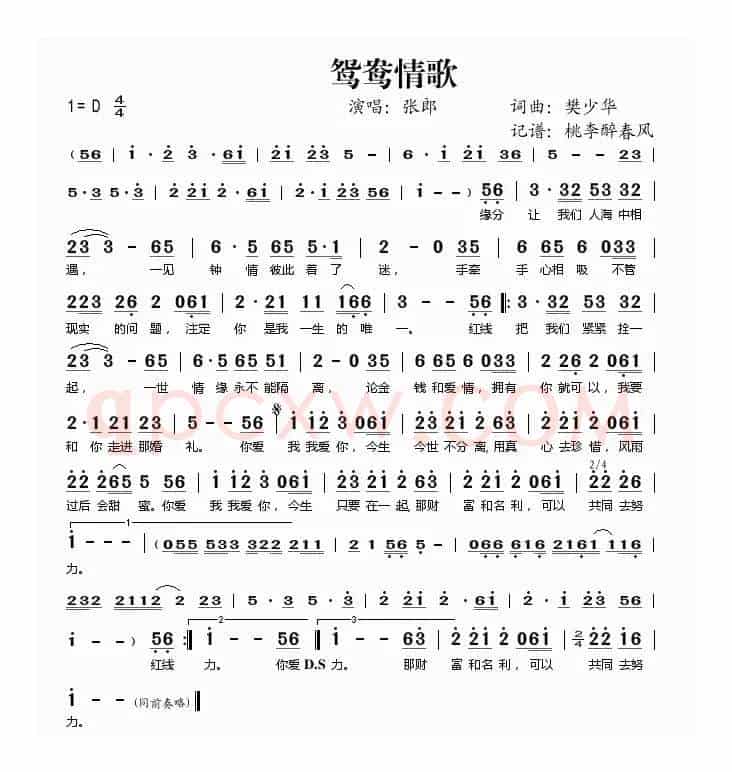 鸳鸯情歌
1= D 4/4 演唱：张郎 词曲：樊少华
记谱：桃李醉春风
( 56 | i · 2 3 · 6i | 2i 23 5 - | 6 · i 2i 36 | 5 - - 23 |
5 · 3 5 · 3 | 2 · i 2 · 6i | 2 · i 23 56 | i - - ) 56 | 3 · 32 53 32 |
缘分 让 我们 人海 中相
23 3 - 65 | 6 · 65 65 5·1 | 2 - 0 35 | 6 65 6 033 |
遇， 一见 钟 情 彼此 着 了 迷， 手牵 手 心相 吸 不管
223 26 2 061 | 2 · 21 11 166 | 3 - - 56 |: 3 · 32 53 32 |
现实 的问 题，注定 你 是我 一生 的 唯 一。 红线 把 我们 紧紧 拴一
23 3 - 65 | 6 · 65 65 51 | 2 - 0 35 | 6 65 6 033 | 2 26 2 061 |
起， 一世 情 缘 永不 能隔 离， 论金 钱 和爱 情，拥有 你 就可 以，我要
2 · 21 21 23 | 5 - - 56 | i i2 3 06i | 23 2i 2 63 | 2 2i 2 06i |
和 你 走进 那婚 礼。 你爱 我 我爱 你，今生 今世 不分 离,用真 心 去珍 惜，风雨
22 265 5 56 | i i2 3 06i | 23 2i 2 63 | 2 2i 2 06i | 2/4 22 26 |
过后 会甜 蜜。你爱 我 我爱 你，今生 只要 在一 起,那财 富 和名 利，可以 共同 去努
1
i - - - | (055 533 322 211 | 2 1 56 5 - | 066 616 2161 116 |
力。
232 2112 2 23 | 5 · 3 5 · 3 | 2 i 2 · 6i | 2 · i 23 56 |
2 3
i - - ) 56 :| i - - 56 | i - - 63 | 2 2i 2 06i | 2/4 22 i6 |
红线 力。 你爱 D.S 力。 那财 富 和名 利，可以 共同 去努
i - - (同前奏略)
力。
qpcxw.com